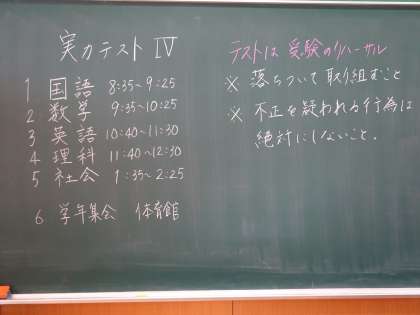 実力テスト Ⅳ
1 国語 8:35~9:25
2 数学 9:35~10:25
3 英語 10:40~11:30
4 理科 11:40~12:30
5 社会 1:35~2:25
6 学年集会 体育館
テストは 受験のリハーサル
※ 落ちついて取組むこと
※ 不正を疑われる行為は
絶対にしないこと。